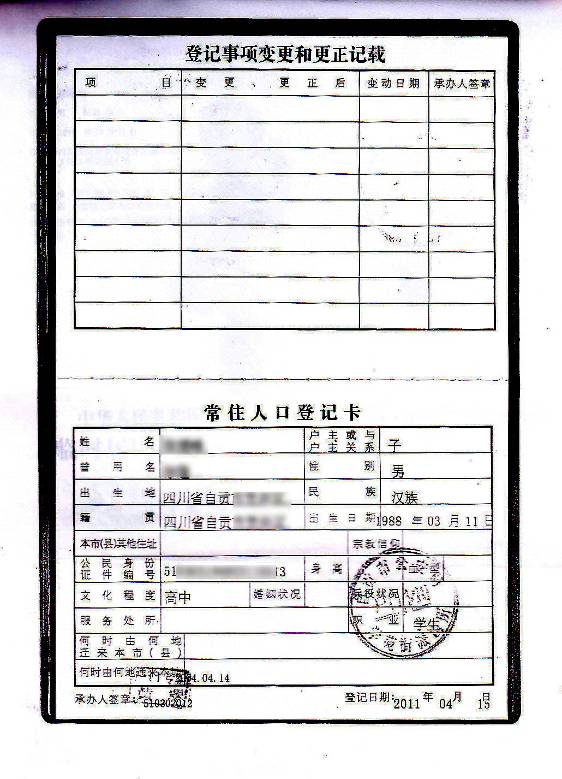 登记事项变更和更正记载
项 目 变 更 、 更 正 后 变动日期 承办人签章
常住人口登记卡
姓 名 户主或与户主关系 子
曾 用 名 性 别 男
出 生 地 四川省自贡市 民 族 汉族
籍 贯 四川省自贡市 出生日期 1988 年 03 月 11 日
本市(县)其他住址 宗教信仰
公民身份证件编号 51 3 身 高
文 化 程 度 高中 婚姻状况 兵役状况
服 务 处 所 职 业 学生
何时由何地迁来本市(县)
何时由何地迁来本址 .04.14
承办人签章: 510302012 登记日期: 2011 年 04 月 15 日